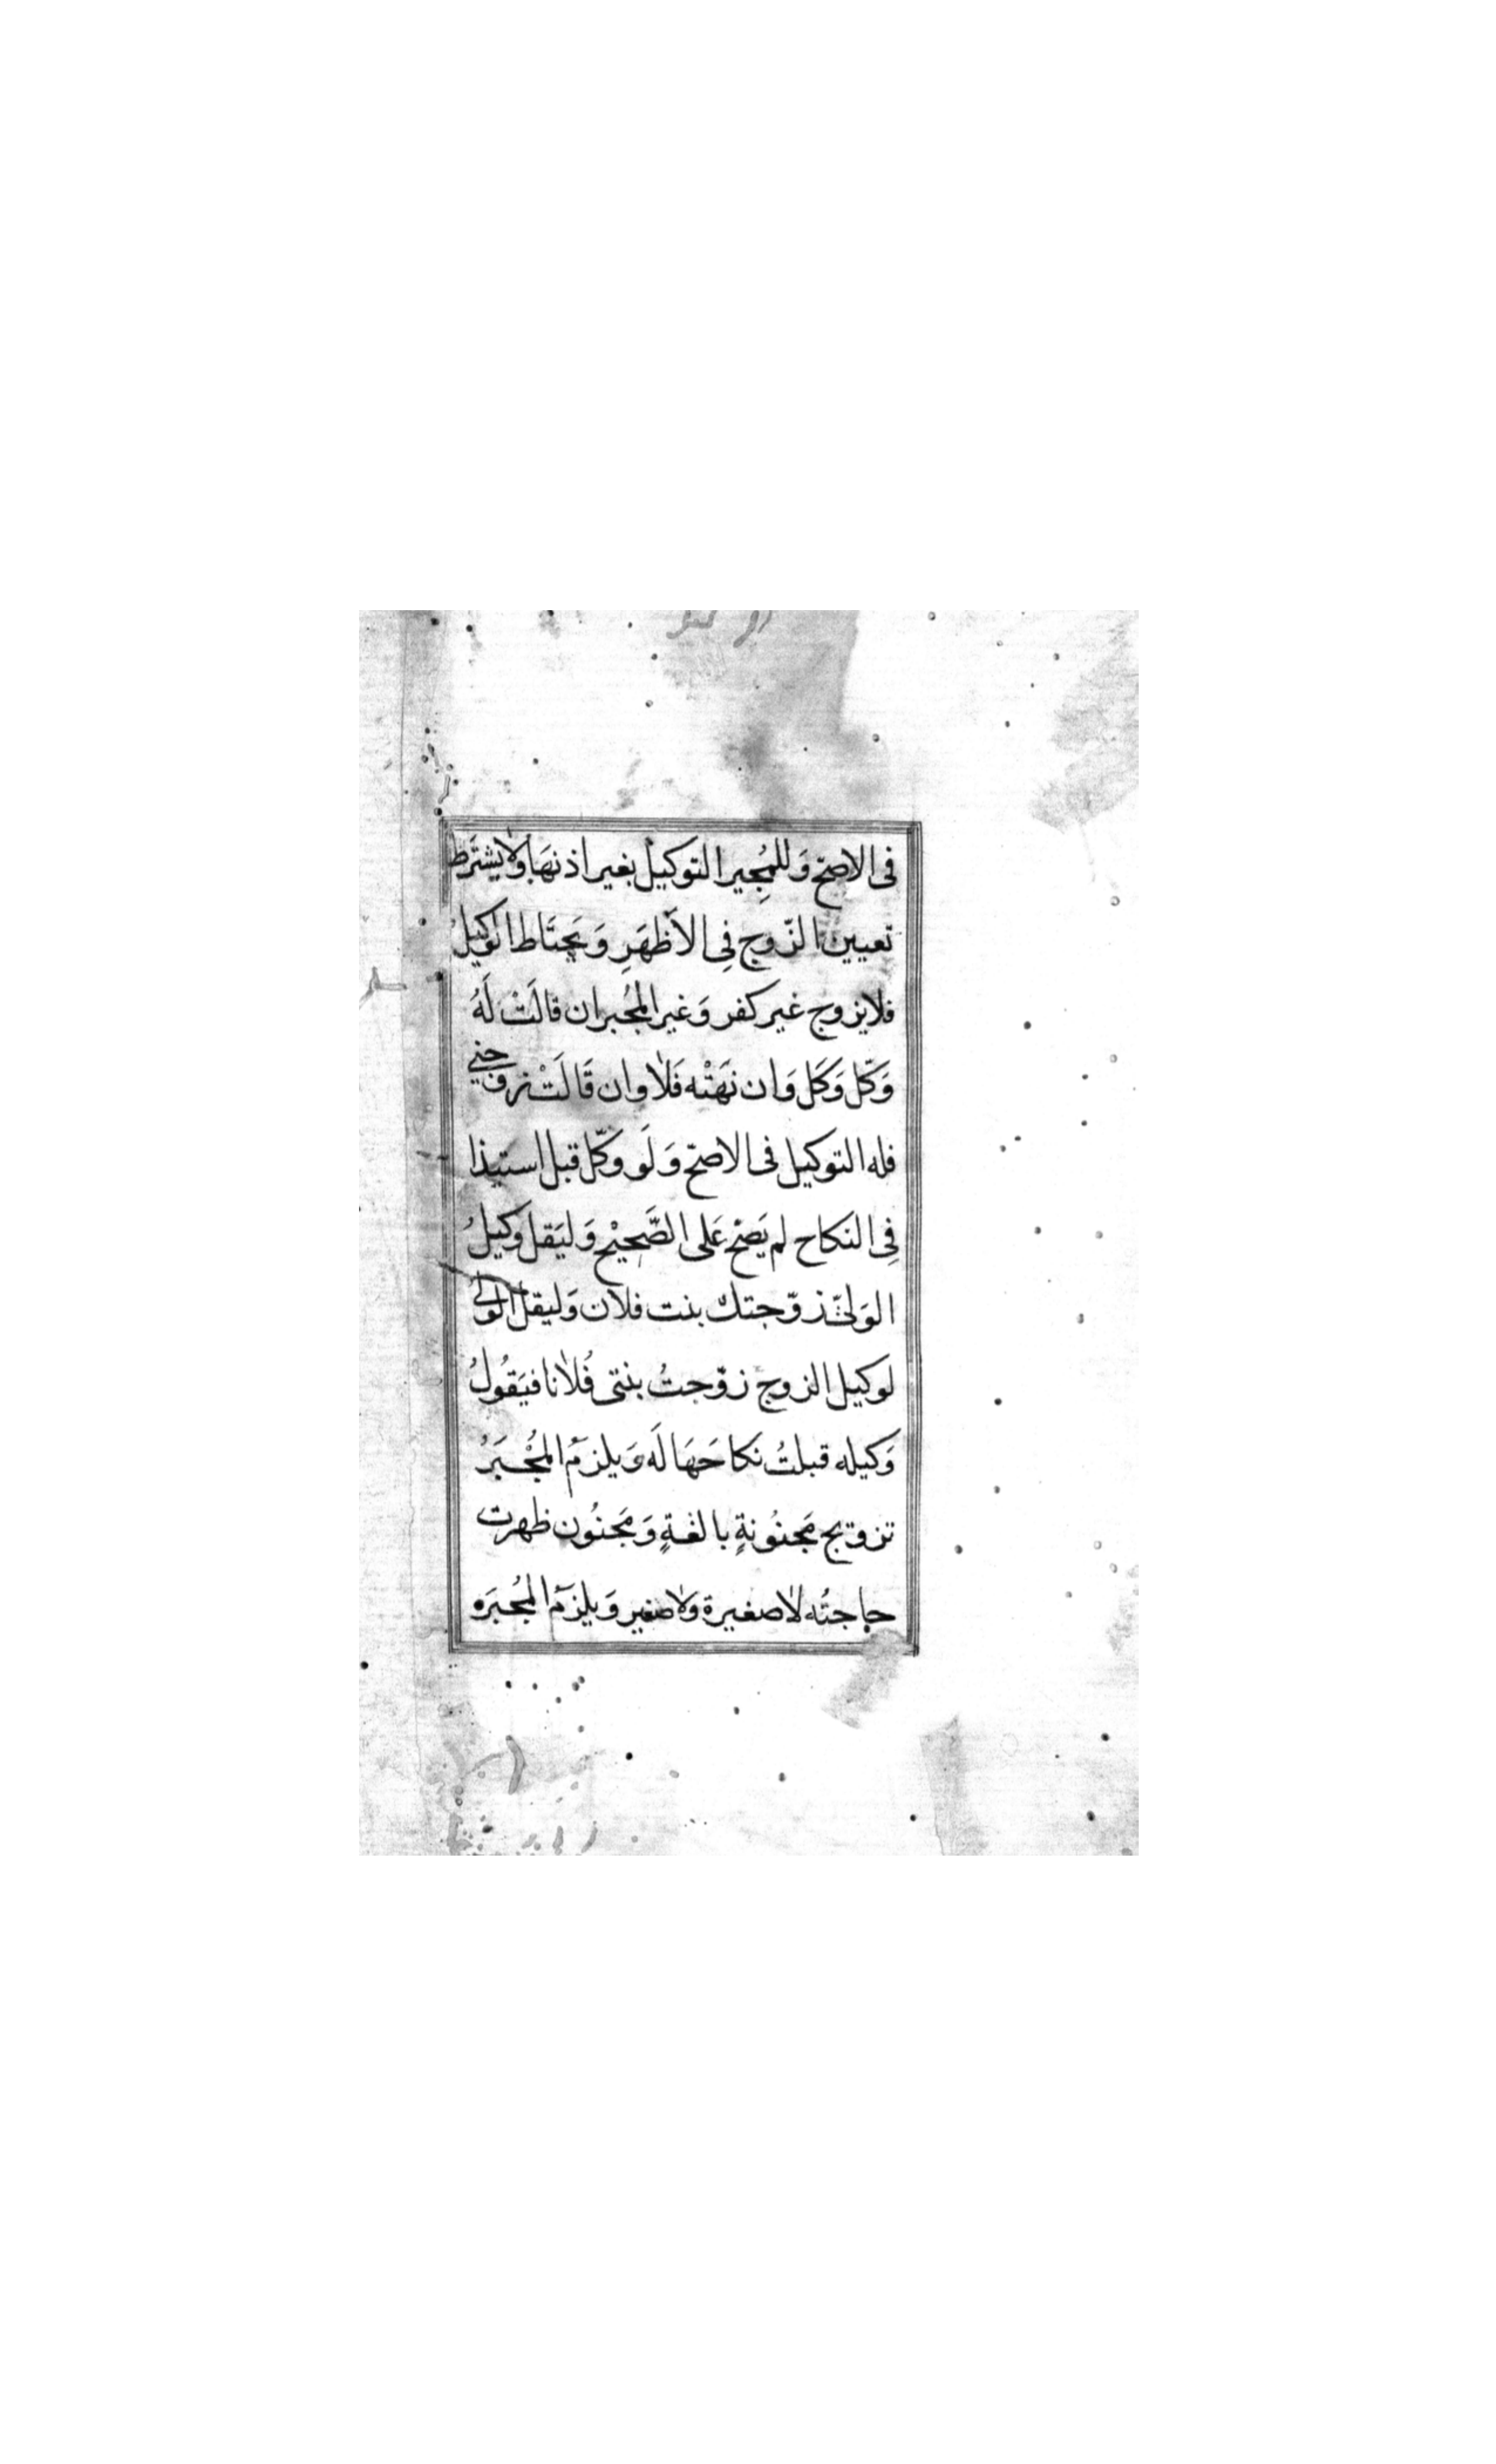 فى الاصحّ وَللمُجِبر التوكيل بغير اذنهَا وَلا يشترَط
تعيين الزّوج فِى الأظهَرِ وَيَحتَاط الوَكيلُ
فلا يزوج غير كفر وَغير المجُبران قالَتْ لَهُ
وَكّل وَكّل وَان نهَتْه فَلا وان قَالَتْ زوّجني
فله التوكيل فى الاصحّ وَلَو وكّل قبل استيذا
فِى النكاح لم يَصحّ عَلى الصَّحيْح وَليَقل وَكيلُ
الوَلىّ زوّجتك بنت فلان وَليقل الولي
لوكيل الزوج زوّجتُ بنتى فُلانا فيَقُولُ
وَكيله قبلتُ نكاحَهَا لَه وَيلزمُ المجُبَرُ
تزويج مَجنُونةٍ بالغةٍ وَمَجنُون ظهرت
حاجتُه لا صغيرة وَلا صغير وَيلزَمُ المجُبَره